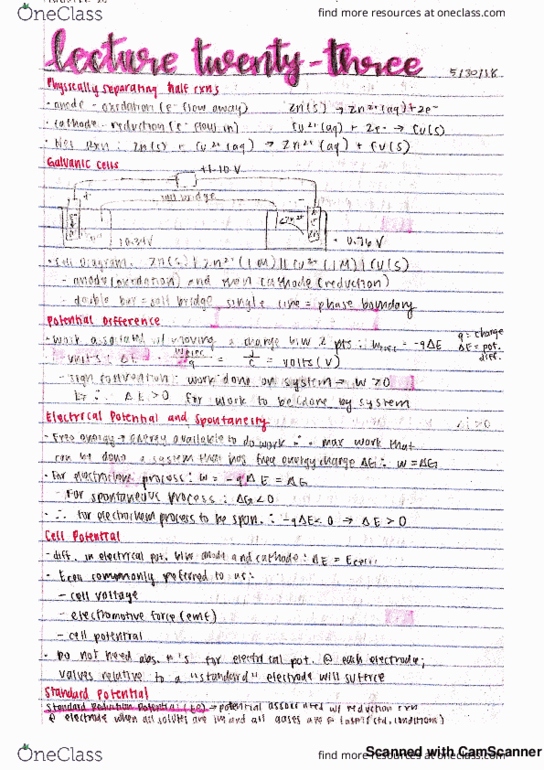 OneClass
find more resources at oneclass.com
lecture twenty-three 5/30/18
Physically separating half rxns
• anode - oxidation (e⁻ flow away) Zn(s) → Zn²⁺(aq) + 2e⁻
• cathode - reduction (e⁻ flow in) Cu²⁺(aq) + 2e⁻ → Cu(s)
• Net rxn: Zn(s) + Cu²⁺(aq) → Zn²⁺(aq) + Cu(s)
Galvanic Cells
+1.10 V
salt bridge
0.34V
0.76 V
• Cell diagram: Zn(s) | Zn²⁺(1M) || Cu²⁺(1M) | Cu(s)
- anode (oxidation) and then cathode (reduction)
- double bar = salt bridge single line = phase boundary
Potential Difference
• Work associated w/ moving a charge b/w 2 pts: = -qΔE
q = charge
ΔE = pot. diff.
• units: ΔE = = volts (V)
- sign convention: work done on system → w > 0
∴ ΔE > 0 for work to be done by system
Electrical Potential and Spontaneity
• Free energy → energy available to do work ∴ max work that
can be done a system that has free energy change ΔG: w = ΔG
• For electrochem process: w = -qΔE = ΔG
- For spontaneous process: ΔG < 0
• ∴ for electrochem process to be spon.: -qΔE < 0 → ΔE > 0
Cell Potential
- diff. in electrical pot. b/w anode and cathode: ΔE = Ecell
• Ecell commonly preferred to as:
- cell voltage
- electromotive force (emf)
- cell potential
• Do not need abs. #'s for electrical pot. @ each electrode;
values relative to a "standard" electrode will suffice
Standard Potential
Standard Reduction Potential (E°) → potential associated w/ reduction rxn
@ electrode when all solutes are 1M and all gases are (std. conditions)
OneClass
find more resources at oneclass.com
Scanned with CamScanner